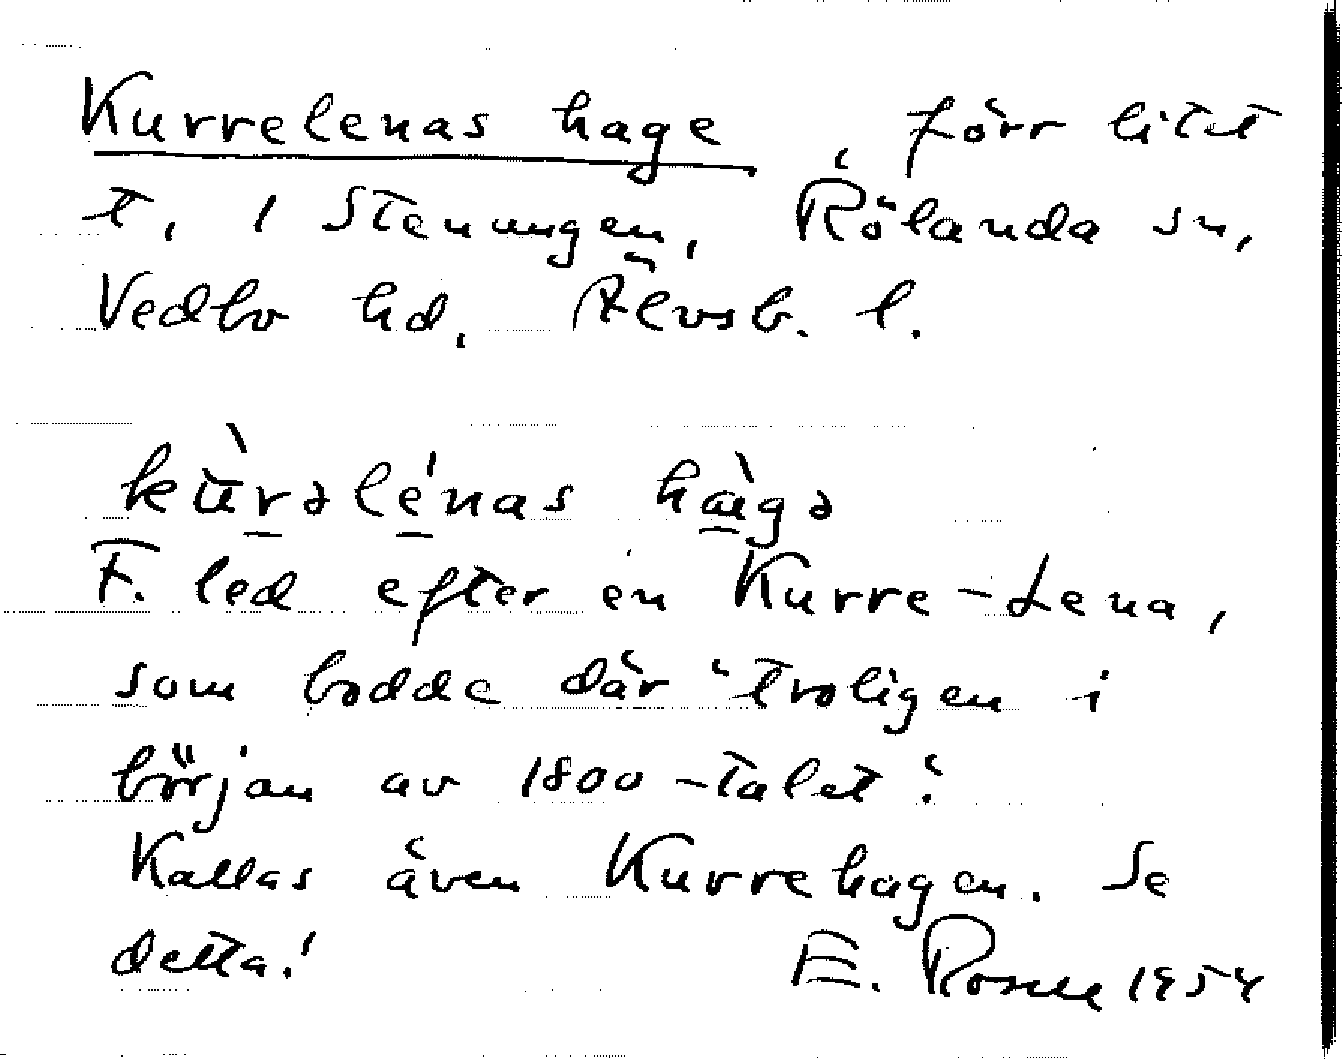 Kurrelenas hage, förr litet
t. i Stenungen, Rölanda sn,
Vedbo hd, Älvsb. l.
kùrəlénas hàgə
F. led efter en Kurre-Lena,
som bodde där "troligen i
början av 1800-talet".
Kallas även Kurrehagen. Se
detta!
E. Rosell 1954